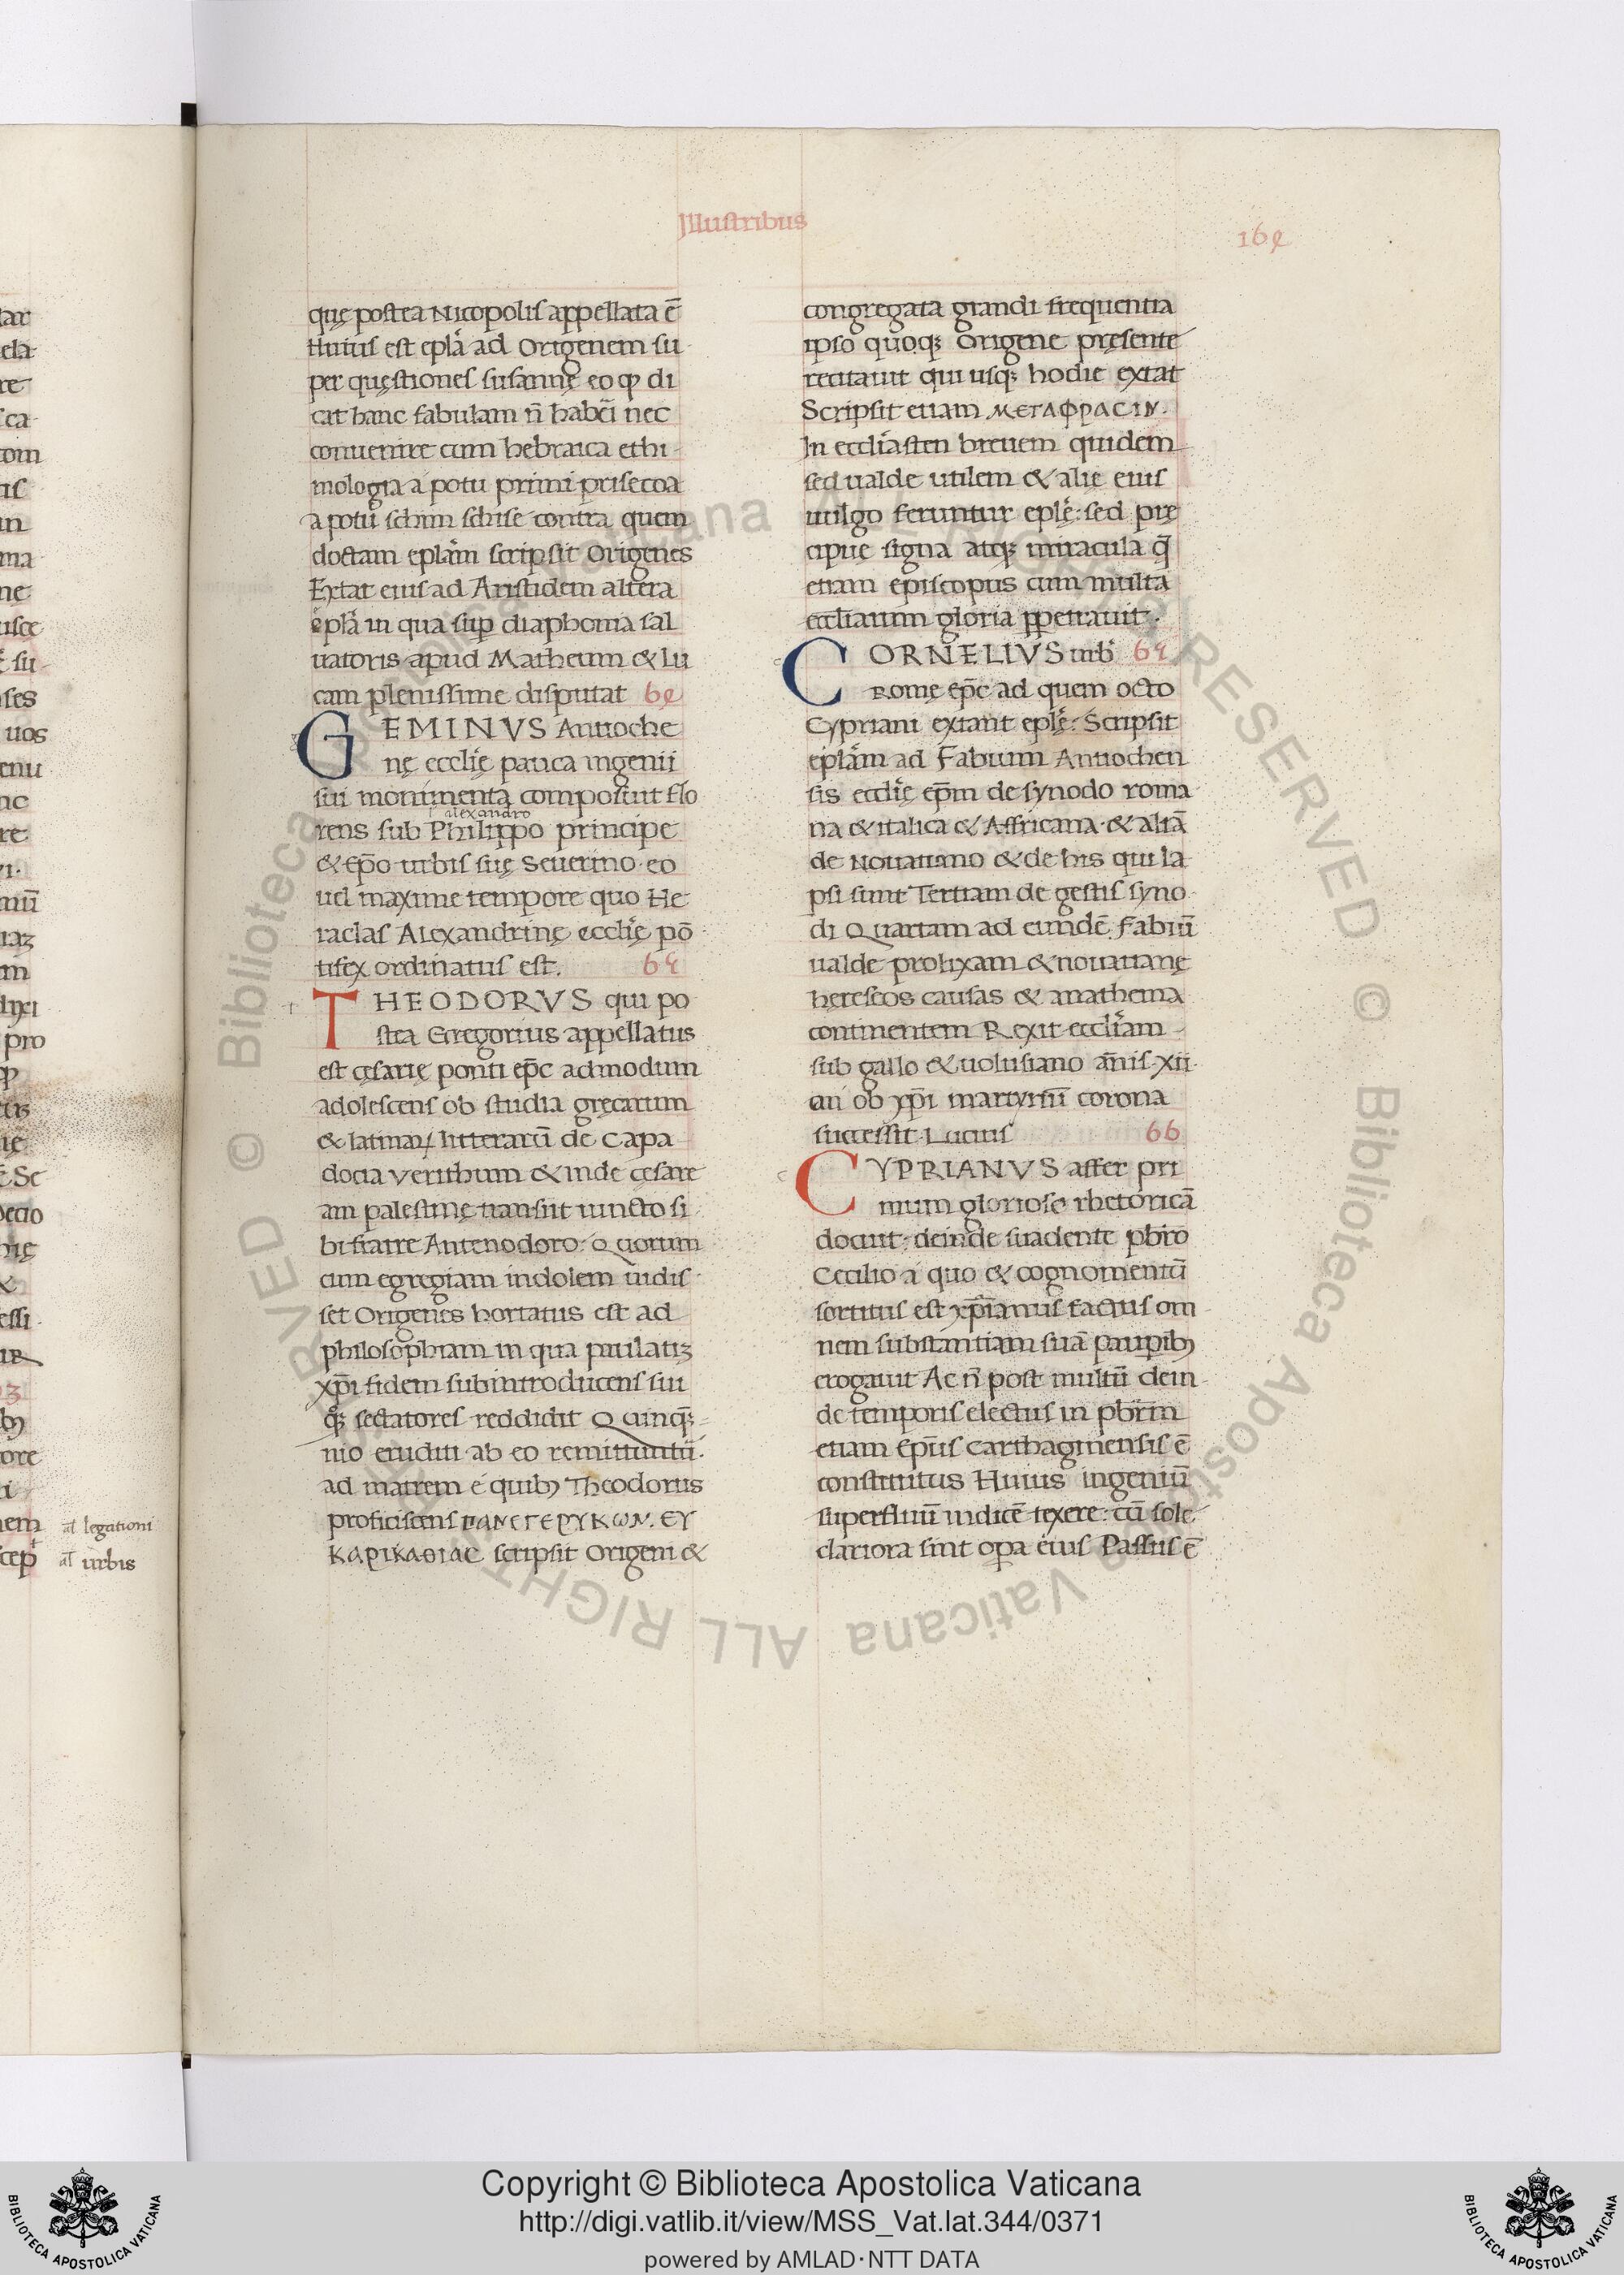 Illustribus
164
quę postea Nicopolis appellata ē
Huius est epl̄a ad Origenem su
per quęstiones susannę eo qp di
cat hanc fabulam n̄ haberi nec
conuenire cum hebraica ethi
mologia a potu prini prisecoa
a potu schini schise contra quem
doctam epl̄am scripsit Origenes
Extat eius ad Aristidem altera
epl̄a in qua sup diaphonia sal
uatoris apud Matheum & Lu
cam plenissime disputat 64
GEMINVS Antioche
nę ecclīę pauca ingenii
sui monimenta composuit flo
alexandro
rens sub Philippo principe
& Ep̄o urbis suę Seuerino· eo
uel maxime tempore quo He
raclas Alexandrinę ecclīę pō
tifex ordinatus est. 65
THEODORVS qui po
stea Gregorius appellatus
est cęsarię ponti ep̄c admodum
adolescens ob studia gręcarum
& latinaꝝ litterarū de Capa
docia Verithum & inde cęsare
am palestinę transiit iuncto si
bi fratre Antenodoro· Quorum
cum egregiam indolem uidis
set Origenes hortatus est ad
philosophiam in qua paulatiꝫ
xp̄i fidem subintroducens sui
qꝫ sectatores reddidit Quinqꝫ=
nio eruditi ab eo remittuntū·
ad matrem é quibꝫ Theodorus
proficiscens ΠΑΝΕΓΕΡΥΚΩΝ. ΕΥ
ΚΑΡΙΚΑΘΙΑC scripsit Origeni &
congregata grandi frequentia
ipso quoqꝫ Origene pręsente
recitauit qui usqꝫ hodie extat
Scripsit etiam ΜΕΤΑΦΡΑCΙΝ.
In eccl̄iasten breuem quidem
sed ualde utilem & alie eius
uulgo feruntur eplę̄: sed prę
cipue signa atqꝫ miracula q̄
etiam episcopus cum multa
eccl̄iarum gloria ꝑpetrauit·
CORNELIVS urbˈ 65
Romę ep̄c ad quem octo
Cypriani extant eplę̄: Scripsit
epl̄am ad Fabium Antiochen
sis ecclīę ep̄m de synodo roma
na & italica & Affricana· & aliā
de Nouatiano & de his qui la
psi sunt Tertiam de gestis syno
di Quartam ad eundē Fabiū
ualde prolixam & nouatianę
hęreseos causas & anathema
continentem Rexit eccl̄iam
sub gallo & uolusiano an̄is·xii·
cui ob xp̄i martyriū corona
successit·Lucius 66
CYPRIANVS affer pri
mum gloriose rhetoricā
docuit· deinde suadente pb̄ro
Cecilio a quo & cognomentū
sortitus est xp̄ianus factus om
nem substantiam suā pauꝑibꝫ
erogauit Ac n̄ post multū dein
de temporis electus in pb̄rm
etiam Ep̄us Carthaginensis ē
constitutus Huius ingeniū
superfluū indicē texere: cū sole
clariora sint oꝑa eius Passus ē
al̄ legationi
al̄ urbis
Copyright © Biblioteca Apostolica Vaticana
http://digi.vatlib.it/view/MSS_Vat.lat.344/0371
powered by AMLAD·NTT DATA